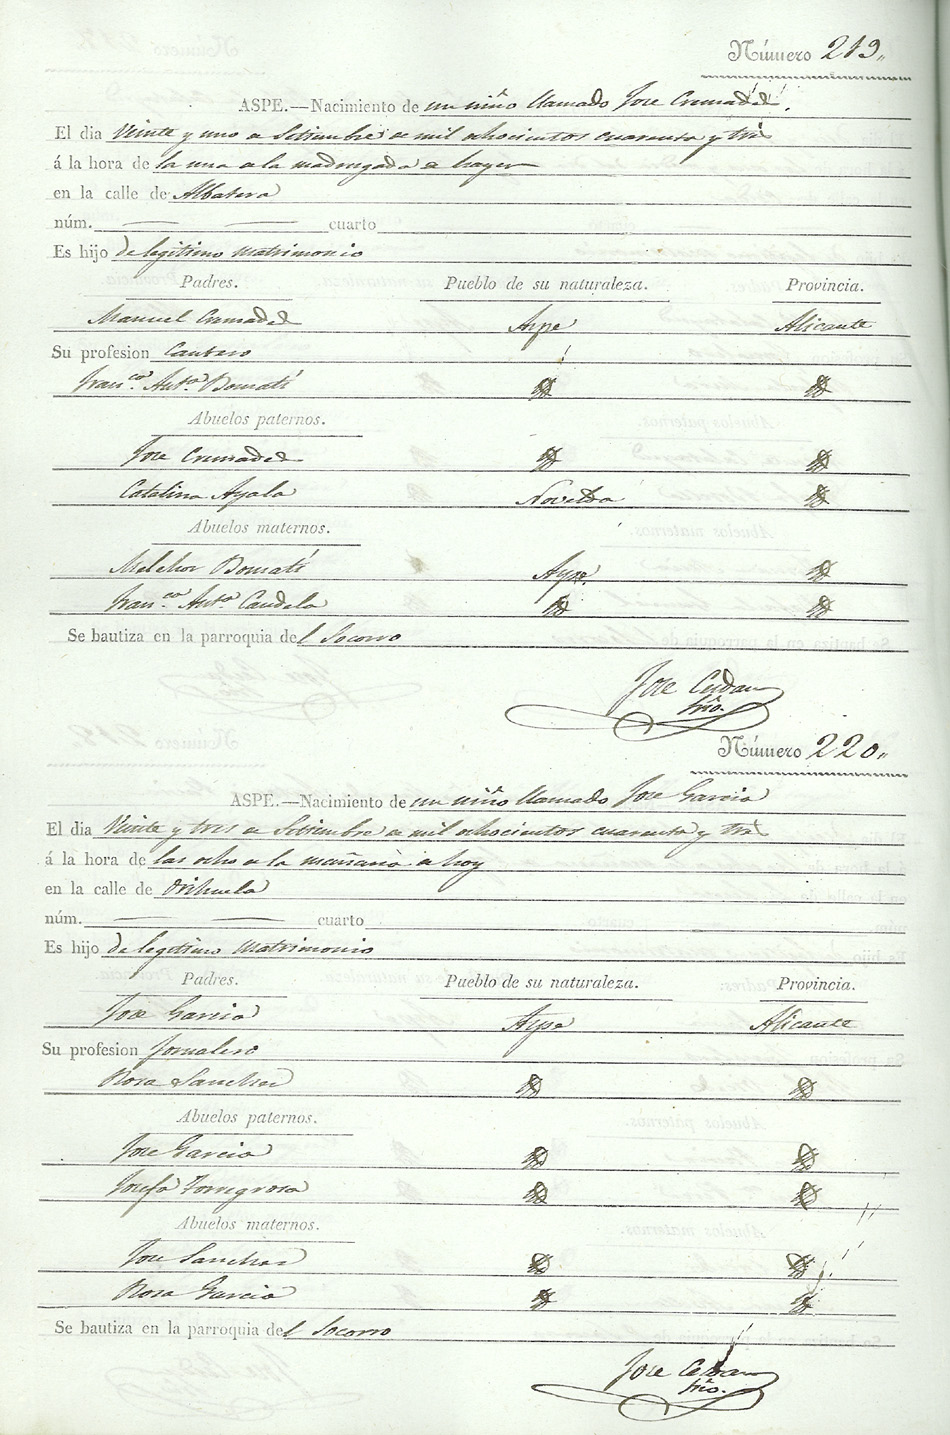 Número 219,,
ASPE.—Nacimiento de un niño llamado Jose Cremades.
El dia Veinte y uno de Setiembre de mil ochocientos cuarenta y tres
á la hora de la una de la madrugada de hayer
en la calle de Albatera
núm. — — cuarto
Es hijo de legitimo matrimonio
Padres. Pueblo de su naturaleza. Provincia.
Manuel Cremades Aspe Alicante
Su profesion Cantero
Fran.ca Ant.a Bonmatí
Abuelos paternos.
Jose Cremades
Catalina Ayala Novelda
Abuelos maternos.
Melchor Bonmatí Aspe
Fran.ca Ant.a Candela
Se bautiza en la parroquia del Socorro
Jose
Srio.
Número 220,,
ASPE.—Nacimiento de un niño llamado Jose Garcia
El dia Veinte y tres de Setiembre de mil ochocientos cuarenta y tres
á la hora de las ocho de la mañana de hoy
en la calle de Orihuela
núm. — — cuarto
Es hijo de legitimo matrimonio
Padres. Pueblo de su naturaleza. Provincia.
Jose Garcia Aspe Alicante
Su profesion Jornalero
Rosa Sanchez
Abuelos paternos.
Jose Garcia
Josefa Torregrosa
Abuelos maternos.
Jose Sanchez
Rosa Garcia
Se bautiza en la parroquia del Socorro
Jose
Srio.